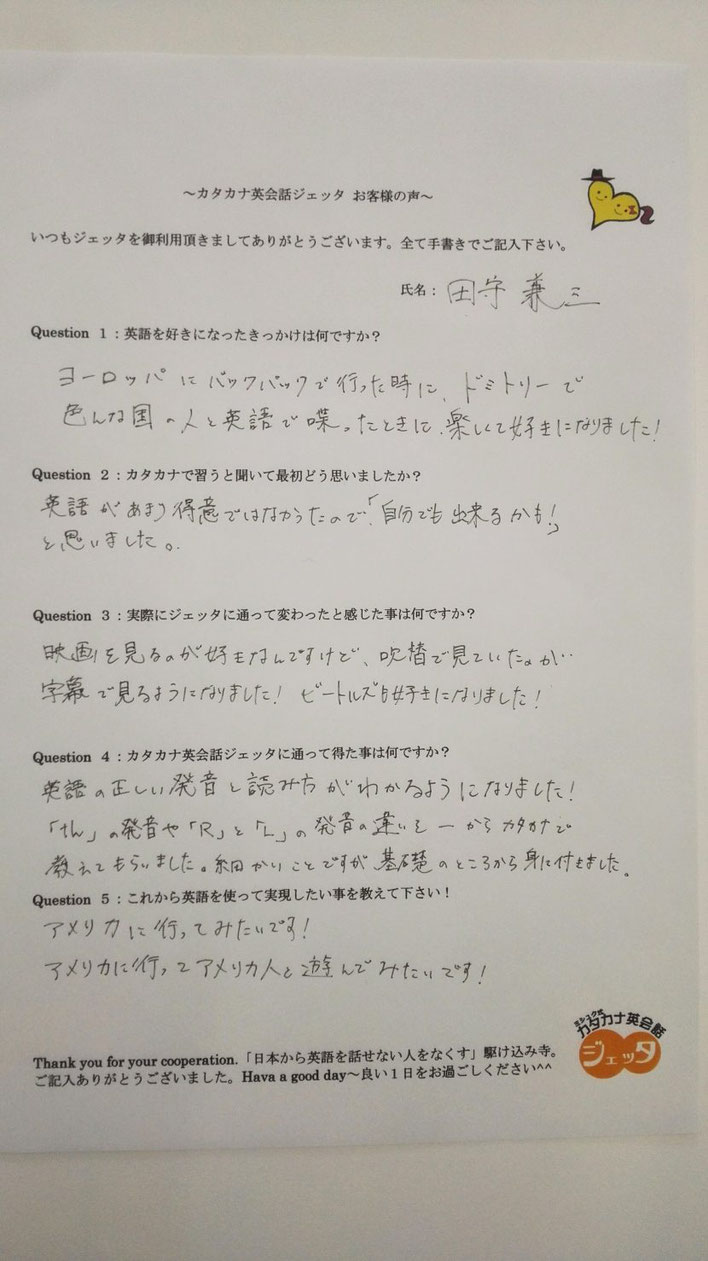 ～カタカナ英会話ジェッタ お客様の声～
いつもジェッタを御利用頂きましてありがとうございます。全て手書きでご記入下さい。
氏名：田守兼三
Question 1：英語を好きになったきっかけは何ですか？
ヨーロッパにバックパックで行った時に、ドミトリーで
色んな国の人と英語で喋ったときに、楽しくて好きになりました！
Question 2：カタカナで習うと聞いて最初どう思いましたか？
英語があまり得意ではなかったので、「自分でも出来るかも！」
と思いました。
Question 3：実際にジェッタに通って変わったと感じた事は何ですか？
映画を見るのが好きなんですけど、吹替で見ていたのが…
字幕で見るようになりました！ ビートルズも好きになりました！
Question 4：カタカナ英会話ジェッタに通って得た事は何ですか？
英語の正しい発音と読み方がわかるようになりました！
「th」の発音や「R」と「L」の発音の違いを一からカタカナで
教えてもらいました。細かいことですが基礎のところから身に付きました。
Question 5：これから英語を使って実現したい事を教えて下さい！
アメリカに行ってみたいです！
アメリカに行ってアメリカ人と遊んでみたいです！
カタカナ英会話
ジェッタ
Thank you for your cooperation.「日本から英語を話せない人をなくす」駆け込み寺。
ご記入ありがとうございました。Hava a good day～良い１日をお過ごしください^^